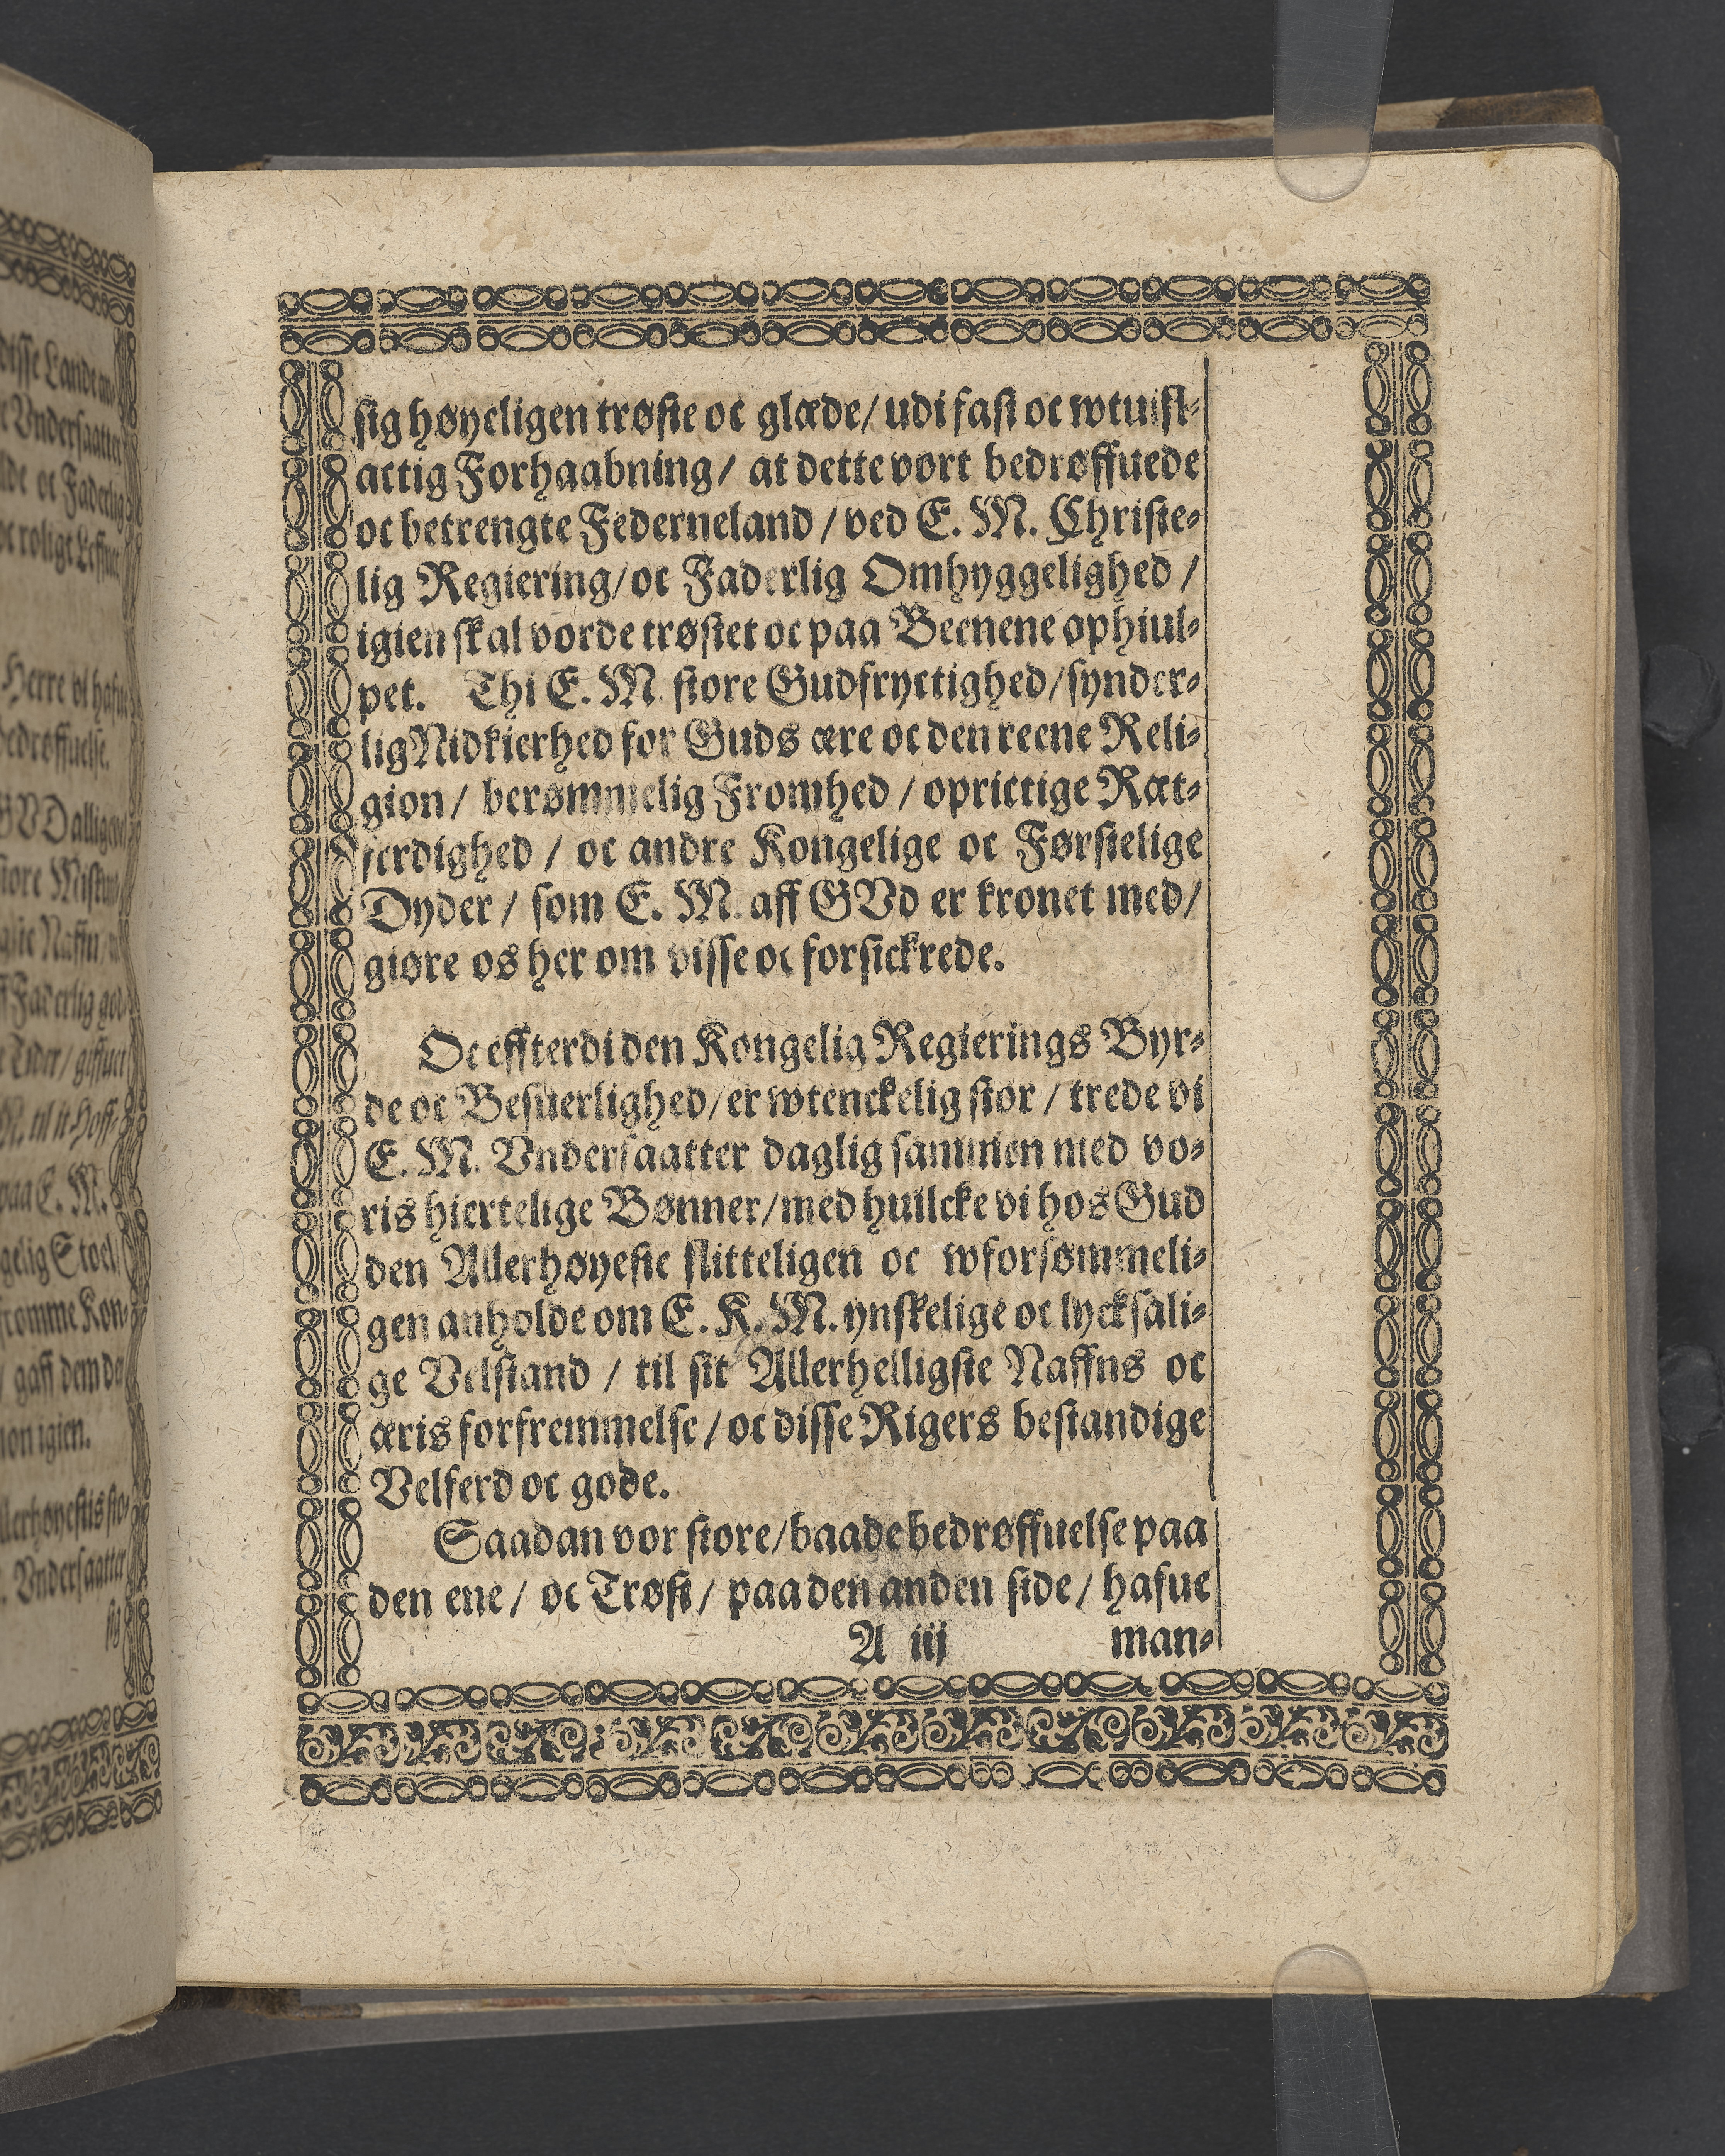 sig høyeligen trøste oc glæde/ udi fast oc wtuifl-
actig Forhaabning/ at dette vort bedrøffuede
oc betrengte Federneland/ ved E. M. Christe-
lig Regiering/ oc Faderlig Omhyggelighed/
igien skal vorde trøstet oc paa Beenene ophiul-
pet. Thi E. M. store Gudfryctighed/ synder-
lig Nidkierhed for Guds ære oc den reene Reli-
gion/ berømmelig Fromhed/ oprictige Ræt-
ferdighed/ oc andre Kongelige oc Førstelige
Dyder/ som E. M. aff GVd er kronet med/
giøre os her om visse oc forsickrede.
Oc effterdi den Kongelig Regierings Byr-
de oc Besuerlighed/ er wtenckelig stor/ trede vi
E. M. Vndersaatter daglig sammen med vo-
ris hiertelige Bønner/ med huilcke vi hos Gud
den Allerhøyeste flitteligen oc wforsømmeli-
gen anholde om E. K. M. ynskelige oc lycksali-
ge Velstand/ til sit Allerhelligste Naffns oc
æris forfremmelse/ oc disse Rigers bestandige
Velferd oc gode.
Saadan vor store/ baade bedrøffuelse paa
den ene/ oc Trøst/ paa den anden side/ hafue
A iij man-